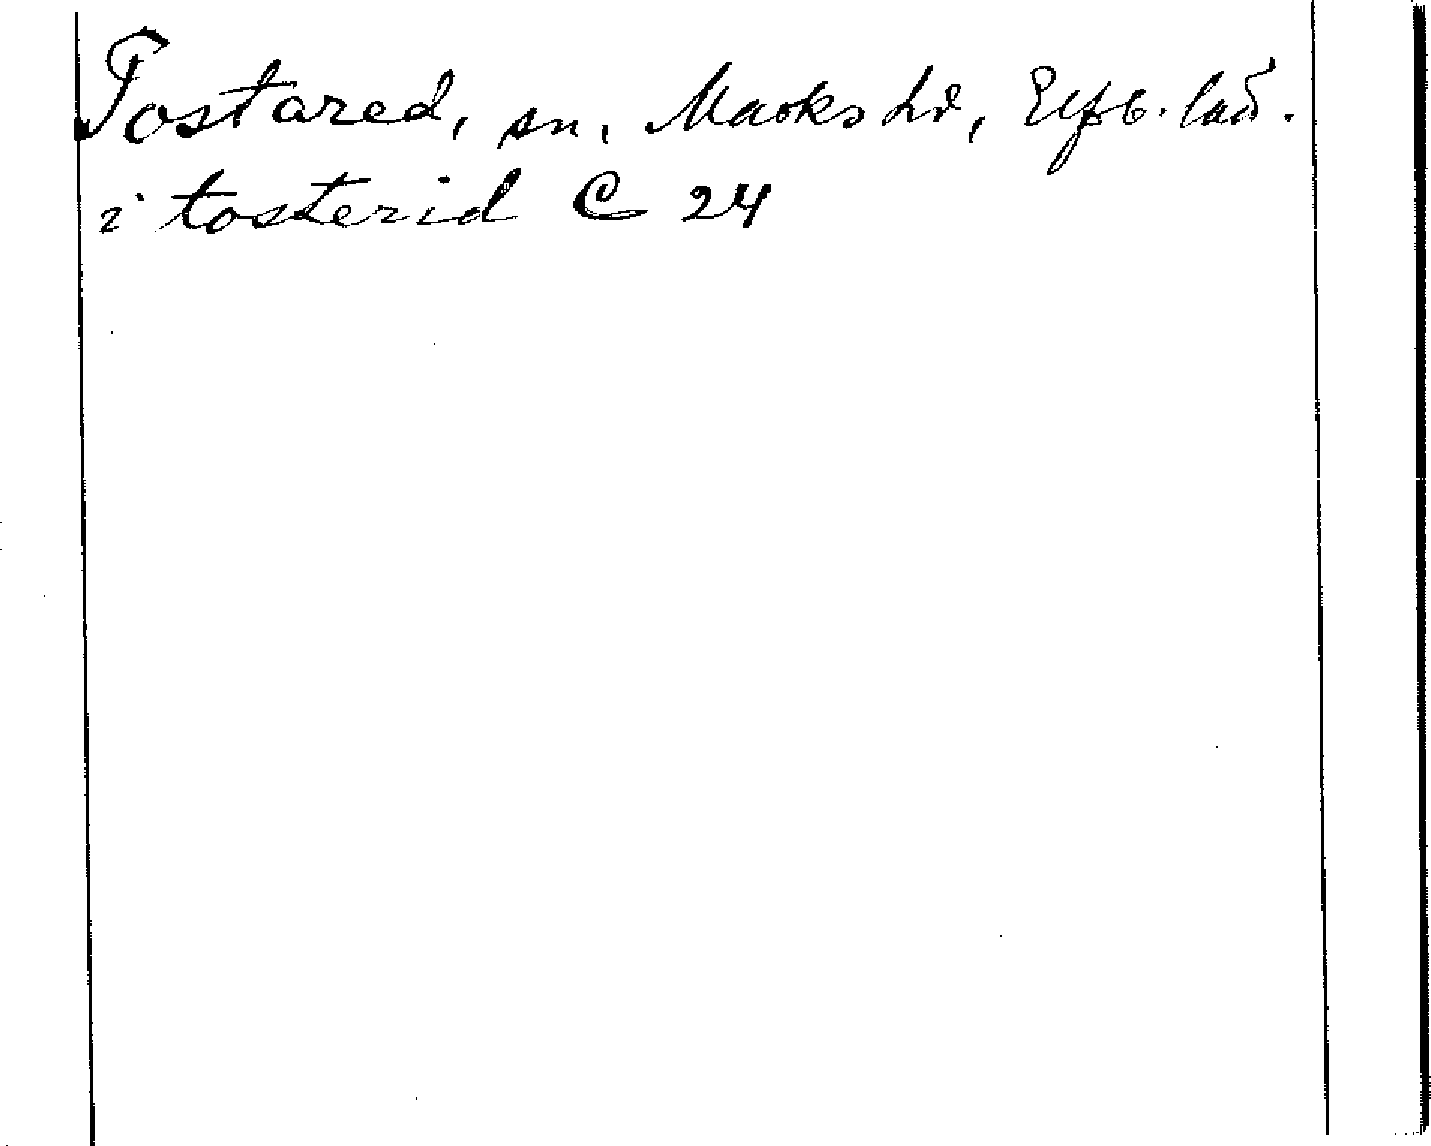 Tostared, sn, Marks hd, Elfsb. län.
i tosterid C 24